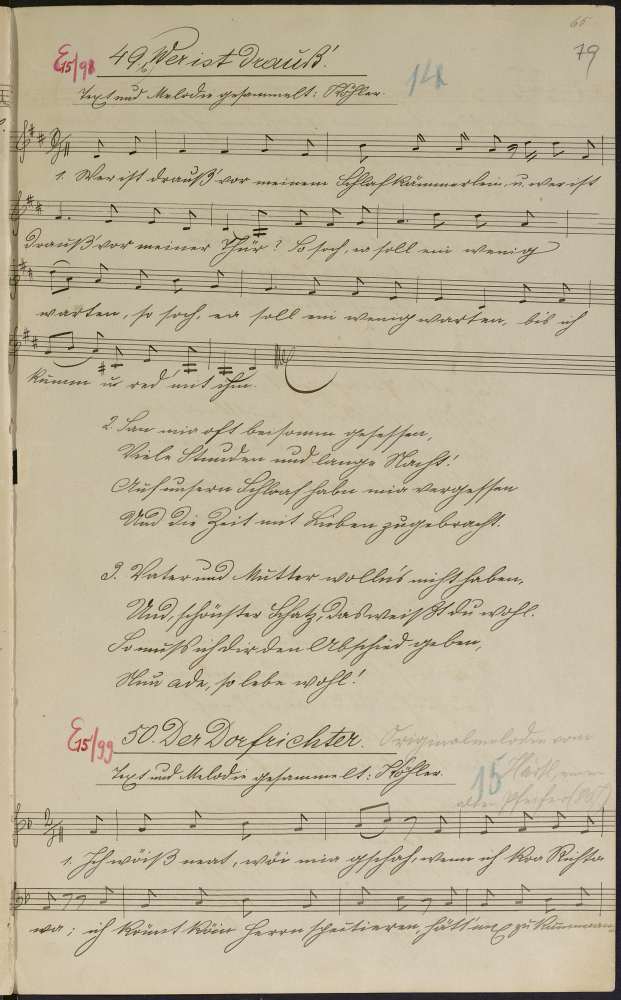 65
79
E15/98 49. Wer ist drauß'. 14
Text und Melodie gesammelt: Köhler.
1. Wer ist drauß' vor meinem Schlafkämmerlein, u. wer ist
drauß' vor meiner Thür? So soch, er soll ein wenig
warten, so soch, er soll ein wenig warten, bis ich
kumm u. red' mit ihm.
2. San mir oft beisamm gesessen,
Viele Stunden und lange Nacht!
Auf unsern Schloaf habn mir vergessen
Und die Zeit mit Lieben zugebracht.
3. Vater und Mutter wolln's nicht haben,
Und, schönster Schatz, das weißt du wohl.
So muß ich dir den Abschied geben,
Nun ade, so lebe wohl!
E15/99 50. Der Dorfrichter. Originalmelodie vom
Text und Melodie gesammelt: Köhler. 15
alten Pfeifer
1. Ich wöiß neat, wöi mir gschah, wenn ich koa Richta
wa; ich könnt köin Herrn speitieren, hätt